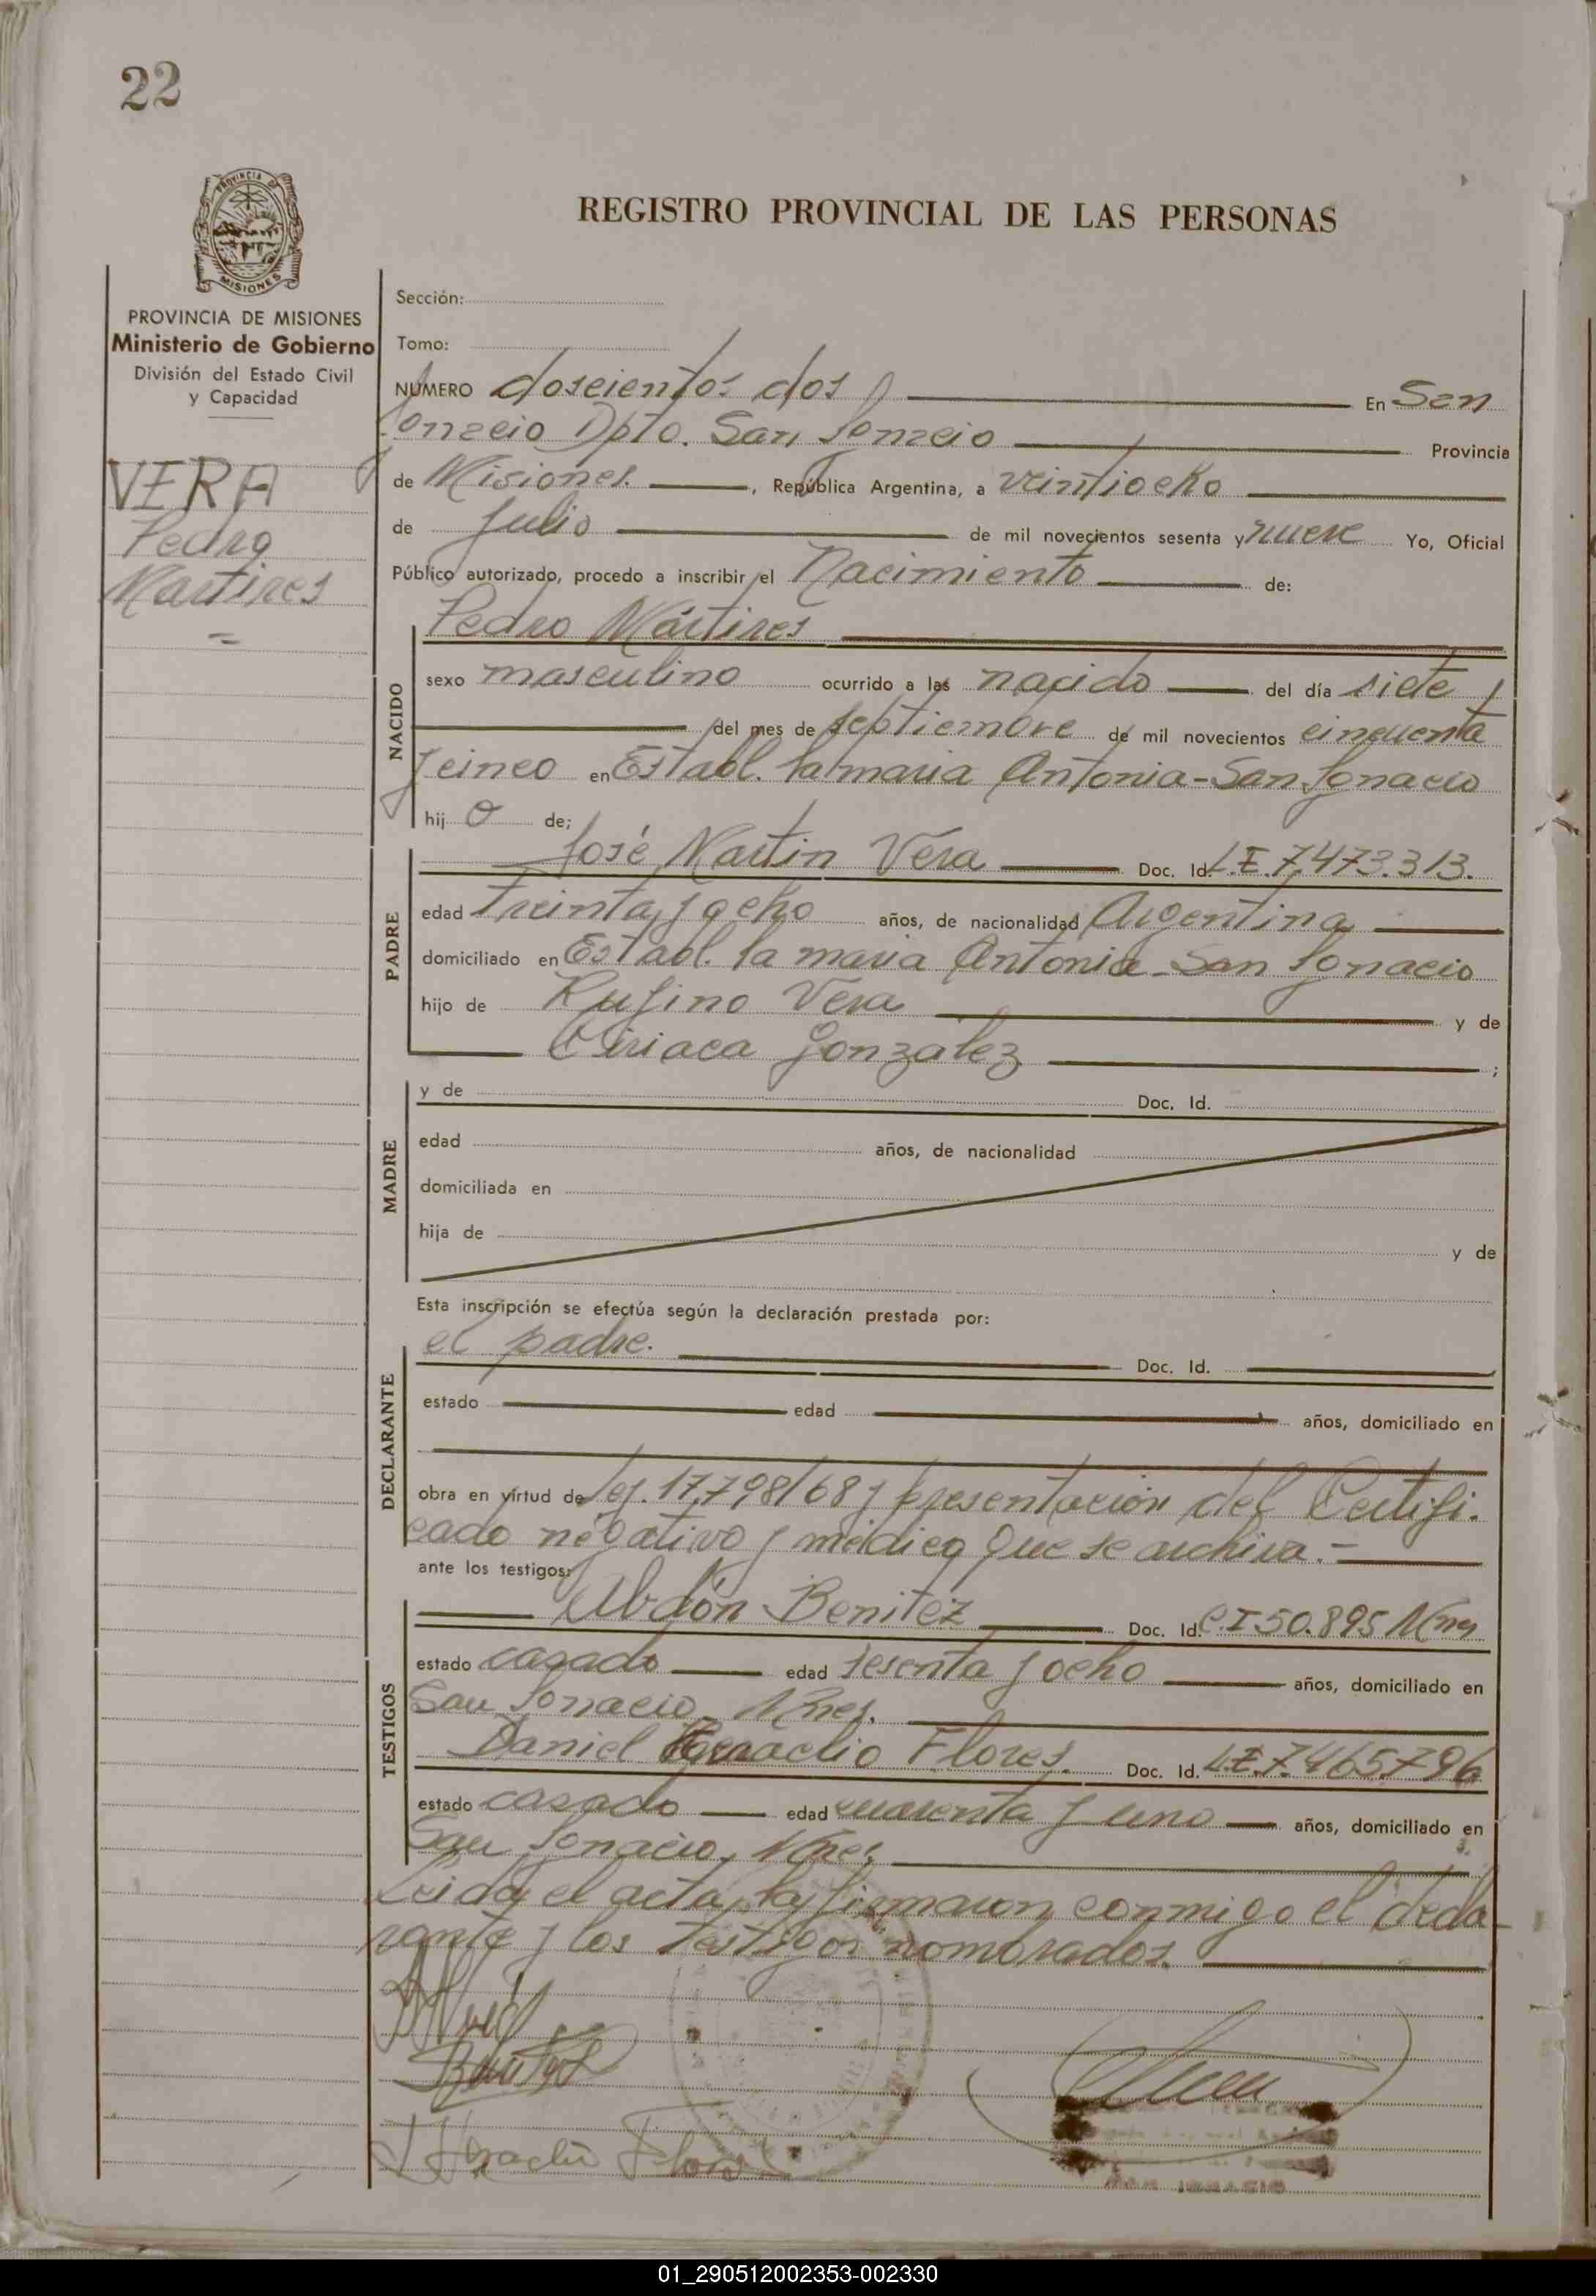 22
PROVINCIA DE
MISIONES
REGISTRO PROVINCIAL DE LAS PERSONAS
PROVINCIA DE MISIONES
Ministerio de Gobierno
División del Estado Civil
y Capacidad
VERA
Pedro
Martires
Sección:
Tomo:
NUMERO doscientos dos En San
Ignacio Dpto. San Ignacio Provincia
de Misiones. , República Argentina, a veintiocho
de Julio de mil novecientos sesenta y nueve Yo, Oficial
Público autorizado, procedo a inscribir el Nacimiento de:
NACIDO
Pedro Mártires
sexo masculino ocurrido a las nacido del día siete
del mes de septiembre de mil novecientos cincuenta
y cinco en Establ. la maria Antonia-San Ignacio
hij o de;
PADRE
José Martin Vera Doc. Id. L.E.7.473.313.
edad Treinta y ocho años, de nacionalidad Argentina
domiciliado en Establ. la maria Antonia-San Ignacio
hijo de Rufino Vera y de
Ciriaca Gonzalez ;
MADRE
y de Doc. Id.
edad años, de nacionalidad
domiciliada en
hija de y de
Esta inscripción se efectúa según la declaración prestada por:
DECLARANTE
el padre. Doc. Id.
estado edad años, domiciliado en
obra en virtud de ley. 17.798/68 y presentación del Certifi.
cado negativo y médico que se archiva.-
ante los testigos:
TESTIGOS
Abdón Benitez Doc. Id. C.I 50.895 Mnes
estado casado edad sesenta y ocho años, domiciliado en
San Ignacio, Mnes.
Daniel Heraclio Flores. Doc. Id. L.E.7.465.796
estado casado edad cuarenta y uno años, domiciliado en
San Ignacio, Mnes.
Leida el acta, la firmaron conmigo el decla-
rante y los testigos nombrados.
Heraclio Flores
SAN IGNACIO
01_290512002353-002330